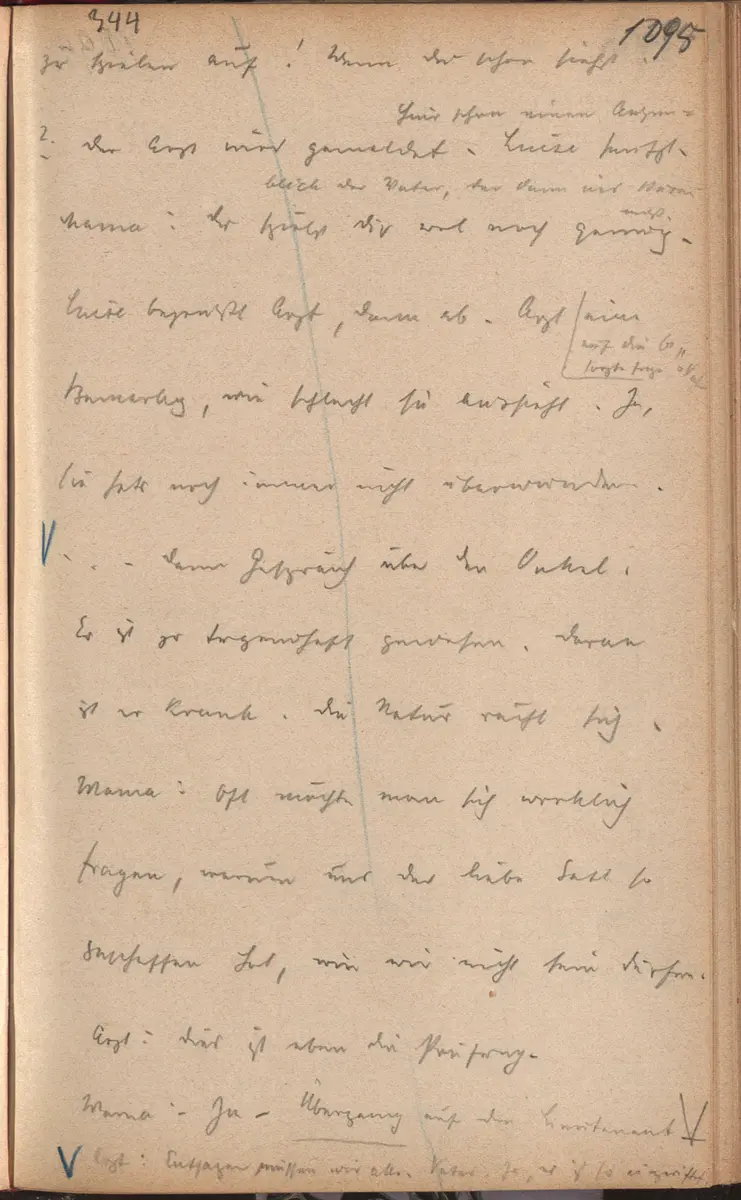 344
1095
zu spielen auf! Wenn du schon siehst.
Hier schon einen Augen=
2. Der Arzt wird gemeldet. Luise seufzt.
blick der Vater, der dann ins
Mama: Du spielst dir wol noch genug.
Luise begrüßt Arzt, dann ab. Arzt eine
auf die
besorgte Frage
Bemerkg, wie schlecht sie aussieht. Ja,
sie hats noch immer nicht überwunden.
. . - dann Gespräch über den Onkel.
Er ist zu tugendhaft gewesen. Daran
ist er krank. Die Natur rächt sich.
Mama: Oft möchte man sich wirklich
fragen, warum uns der liebe Gott so
geschaffen hat, wie wir nicht sein dürfen.
Arzt: Dies ist eben die Prüfung.
Mama: - Ja - Übergang auf den Lieutenant
Arzt: Entsagen müssen wir alle. Vater. Ja, es ist so eingerichtet